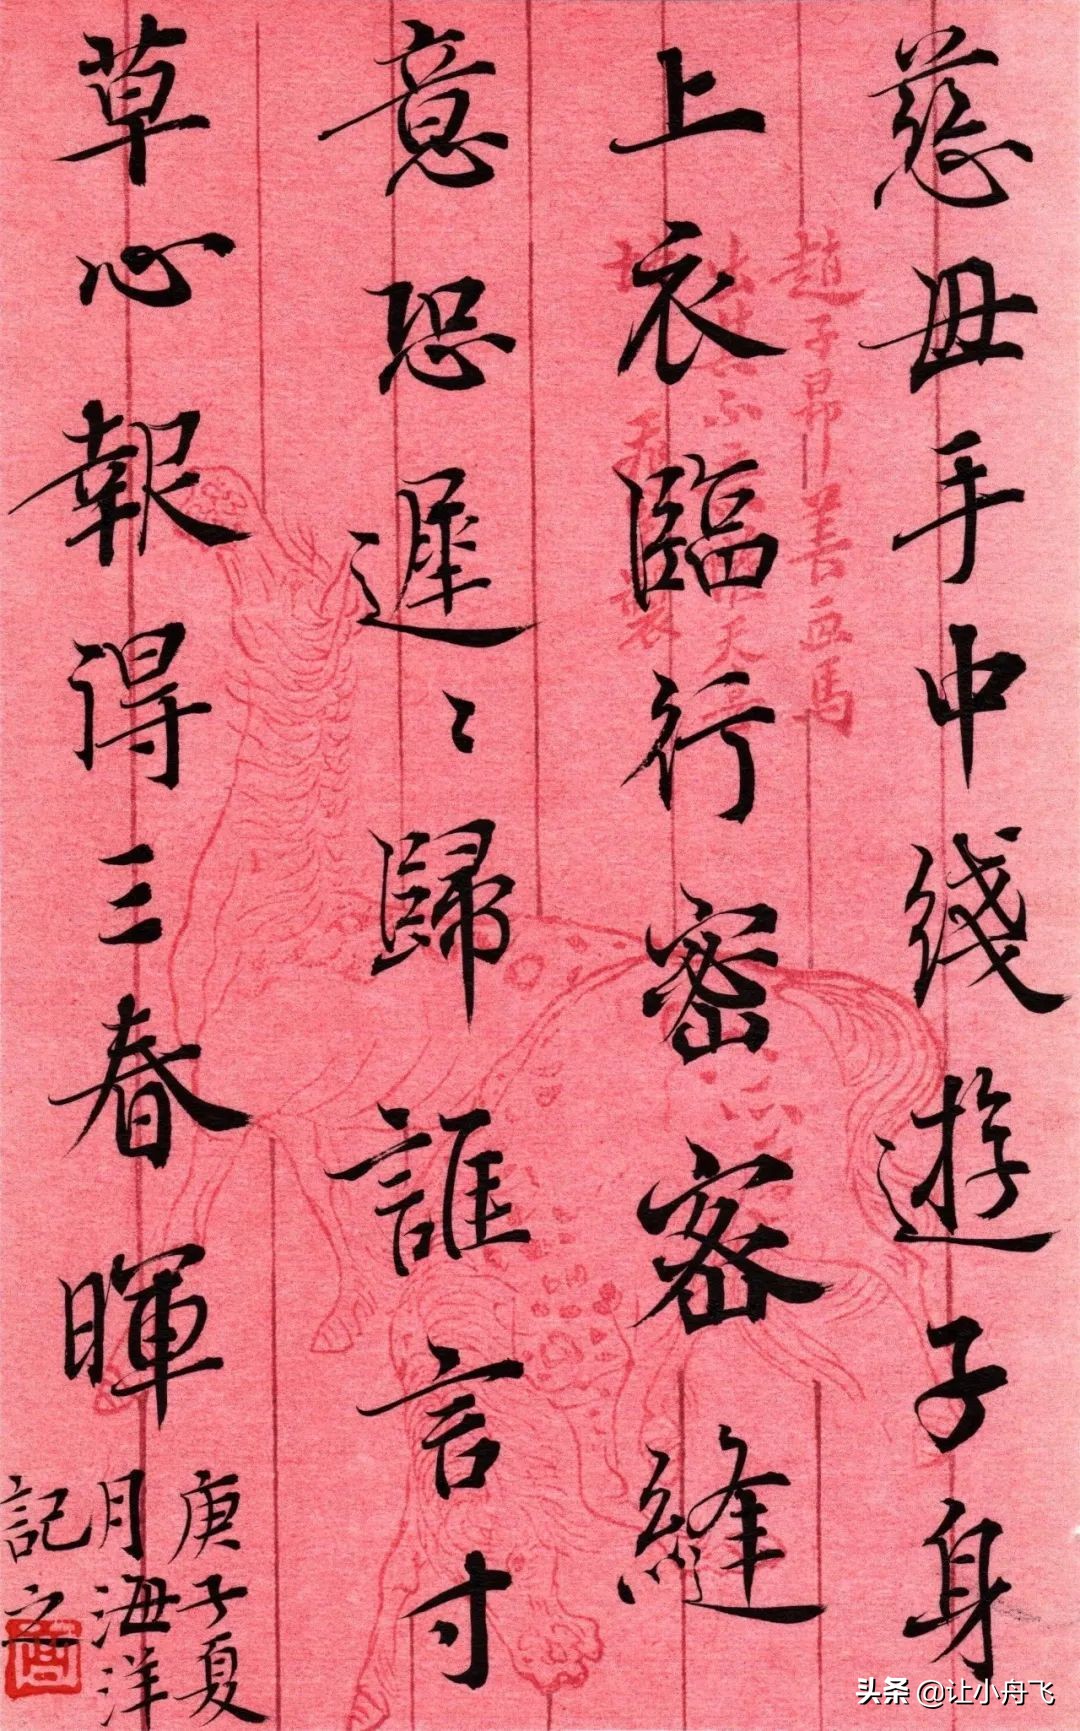 慈母手中线遊子身
上衣臨行密密縫
意恐遲〻歸誰言寸
草心報得三春暉
庚子夏
月海洋
記之
趙子昂善画馬
头条 @让小舟飞